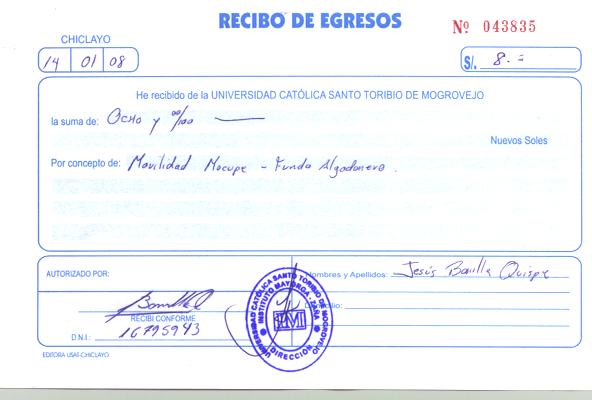 RECIBO DE EGRESOS
Nº 043835
CHICLAYO
14 01 08
S/. 8.=
He recibido de la UNIVERSIDAD CATÓLICA SANTO TORIBIO DE MOGROVEJO
la suma de: Ocho y 00/100
Nuevos Soles
Por concepto de: Movilidad Mocupe - Fundo Algodonero.
AUTORIZADO POR:
Nombres y Apellidos: Jesús Bonilla Quispe
RECIBI CONFORME
D.N.I.: 16795943
UNIVERSIDAD CATÓLICA SANTO TORIBIO DE MOGROVEJO
INSTITUTO MAYORGA-ZAÑA
DIRECCIÓN
EDITORA USAT-CHICLAYO